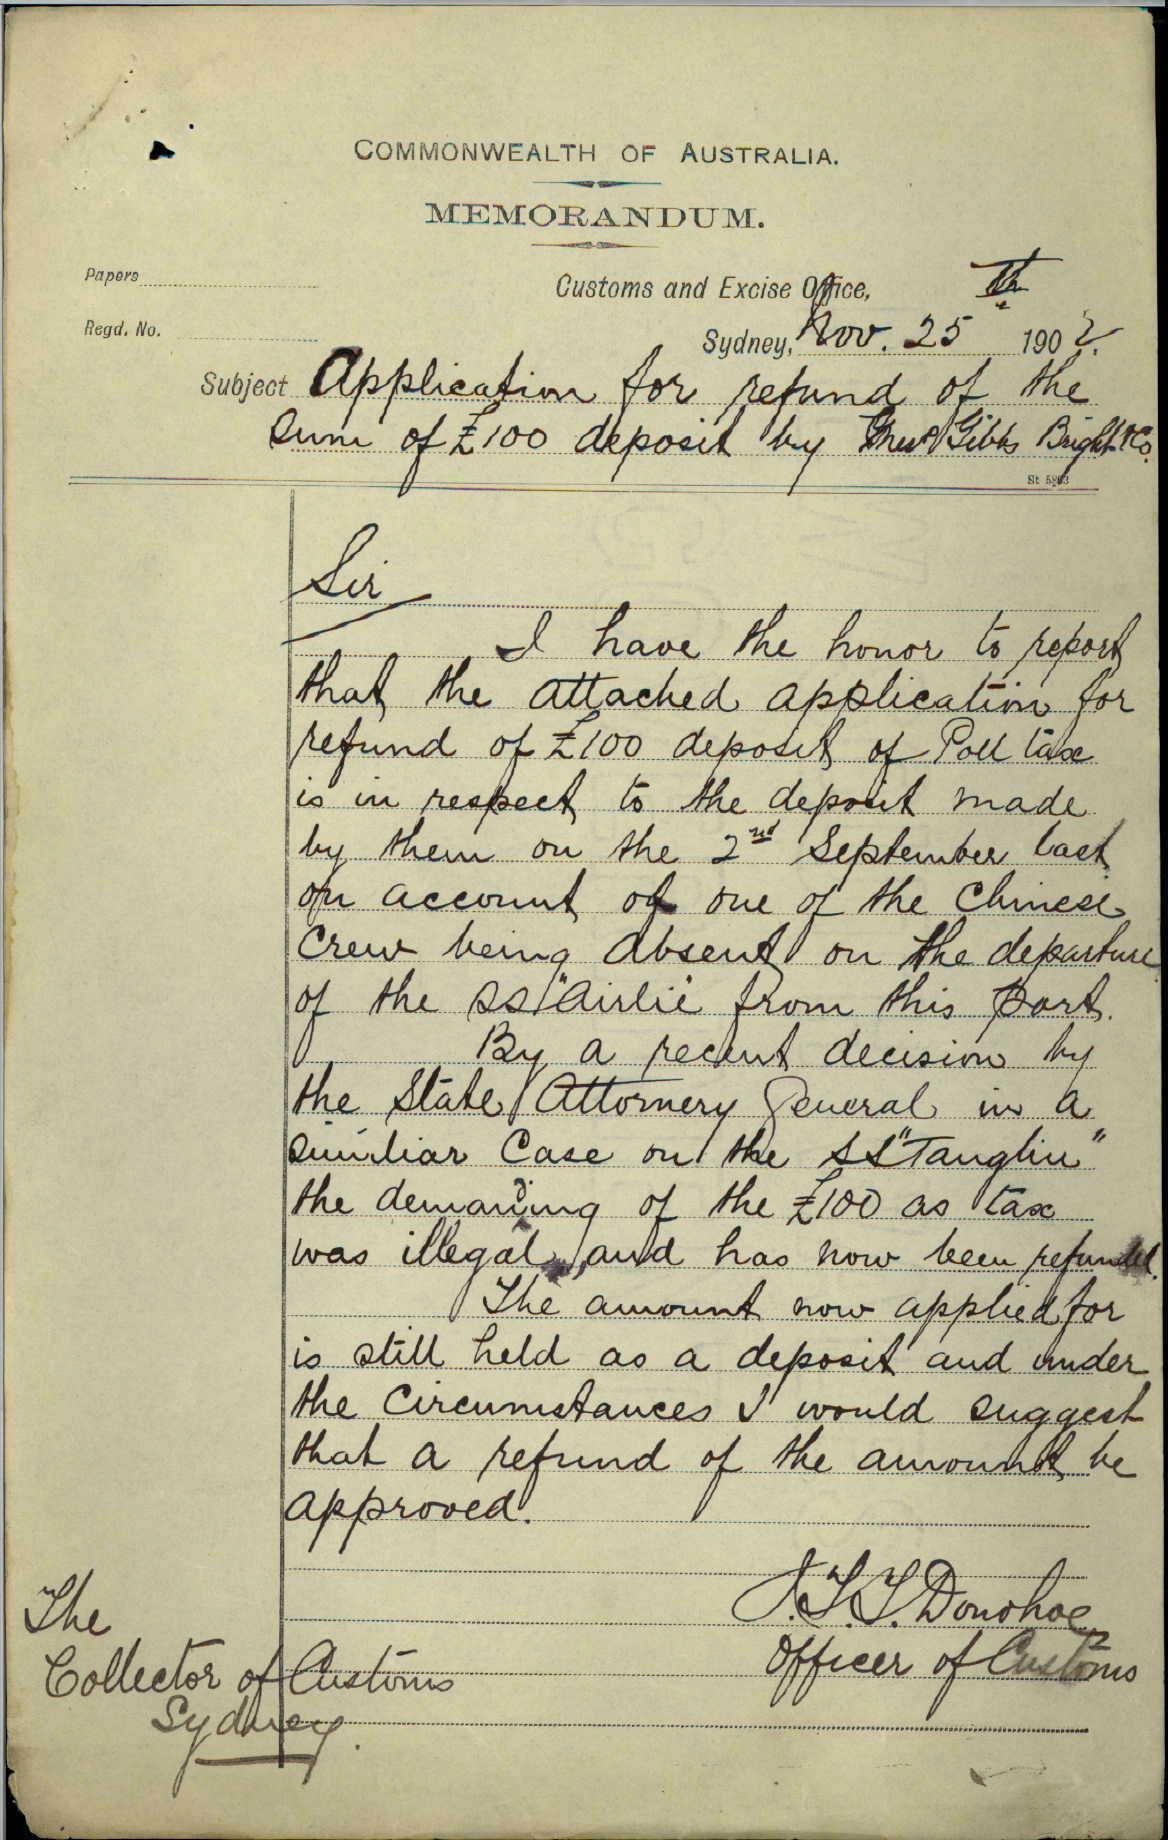 COMMONWEALTH OF AUSTRALIA.
MEMORANDUM.
Papers
Customs and Excise Office,
Regd. No.
Sydney, Nov. 25th 1902.
Subject Application for refund of the
Sum of £100 deposit by Gibbs Bright & Co.
St 5863
Sir
I have the honor to report
that the attached application for
refund of £100 deposit of Poll tax
is in respect to the deposit made
by them on the 2nd September last
on account of one of the Chinese
Crew being absent on the departure
of the SS "Airlie" from this Port.
By a recent decision by
the State Attorney General in a
similiar Case on the SS "Tanglin"
the demanding of the £100 as tax
was illegal, and has now been refunded.
The amount now applied for
is still held as a deposit and under
the Circumstances I would suggest
that a refund of the amount be
approved.
J.T.T. Donohoe
Officer of Customs
The
Collector of Customs
Sydney.